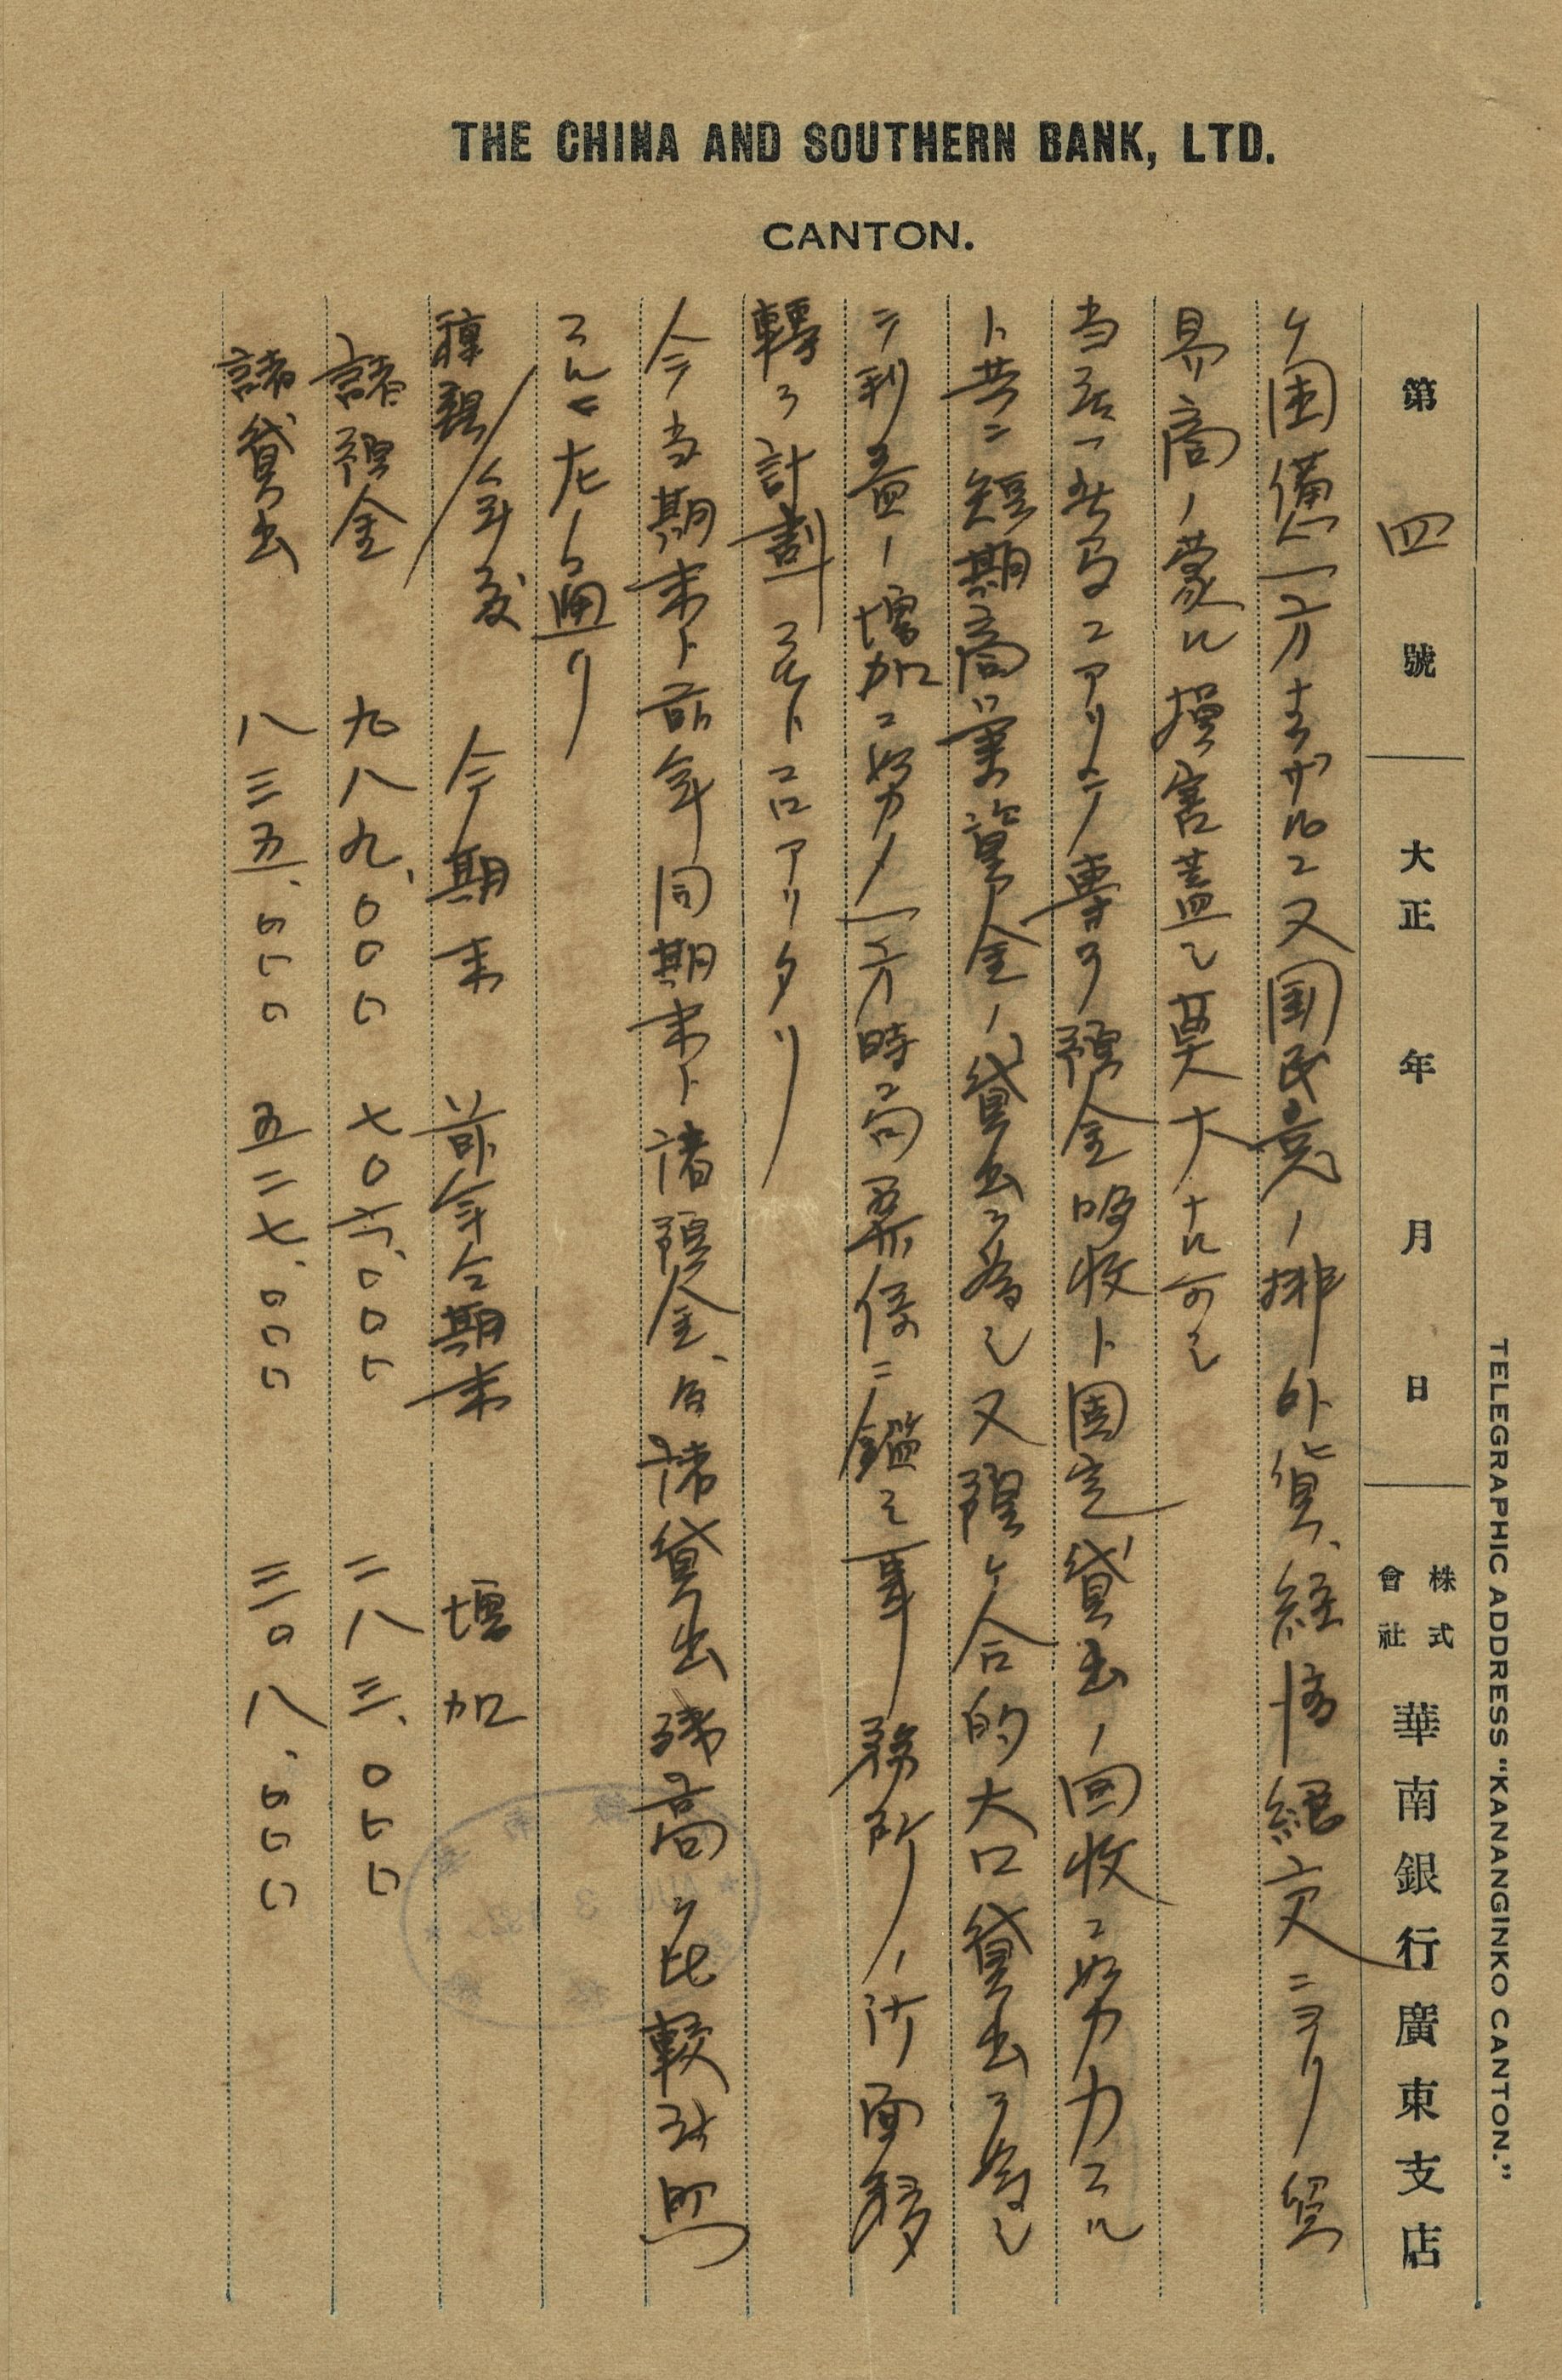 THE CHINA AND SOUTHERN BANK, LTD.
CANTON.
TELEGRAPHIC ADDRESS "KANANGINKO CANTON."
第四號 大正 年 月 日 株式會社 華南銀行廣東支店
ケ困憊一方ナラザルニ又国民党ノ排外貨、経済絶交ニヨリ貿
易商ノ蒙ル損害蓋シ莫大ナル可シ
当店ハ此際ニアリテ専ラ預金吸收ト固定貸出ノ回收ニ努力スル
ト共ニ短期商業資金ノ貸出ヲ為シ又預ケ合的大口貸出ヲ為シ
テ利益ノ増加ニ努メ一方時局柄ニ鑑ミ事務所ノ沙面移
轉ヲ計劃スルトコロアリタリ
今当期末ト前年同期末ト諸預金、各諸貸出残高ヲ比較対照
スレバ左ノ通リ
種類/年度 今期末 前年全期末 増加
諸預金 九八九、〇〇〇 七〇六、〇〇〇 二八三、〇〇〇
諸貸出 八三五、〇〇〇 五二七、〇〇〇 三〇八、〇〇〇